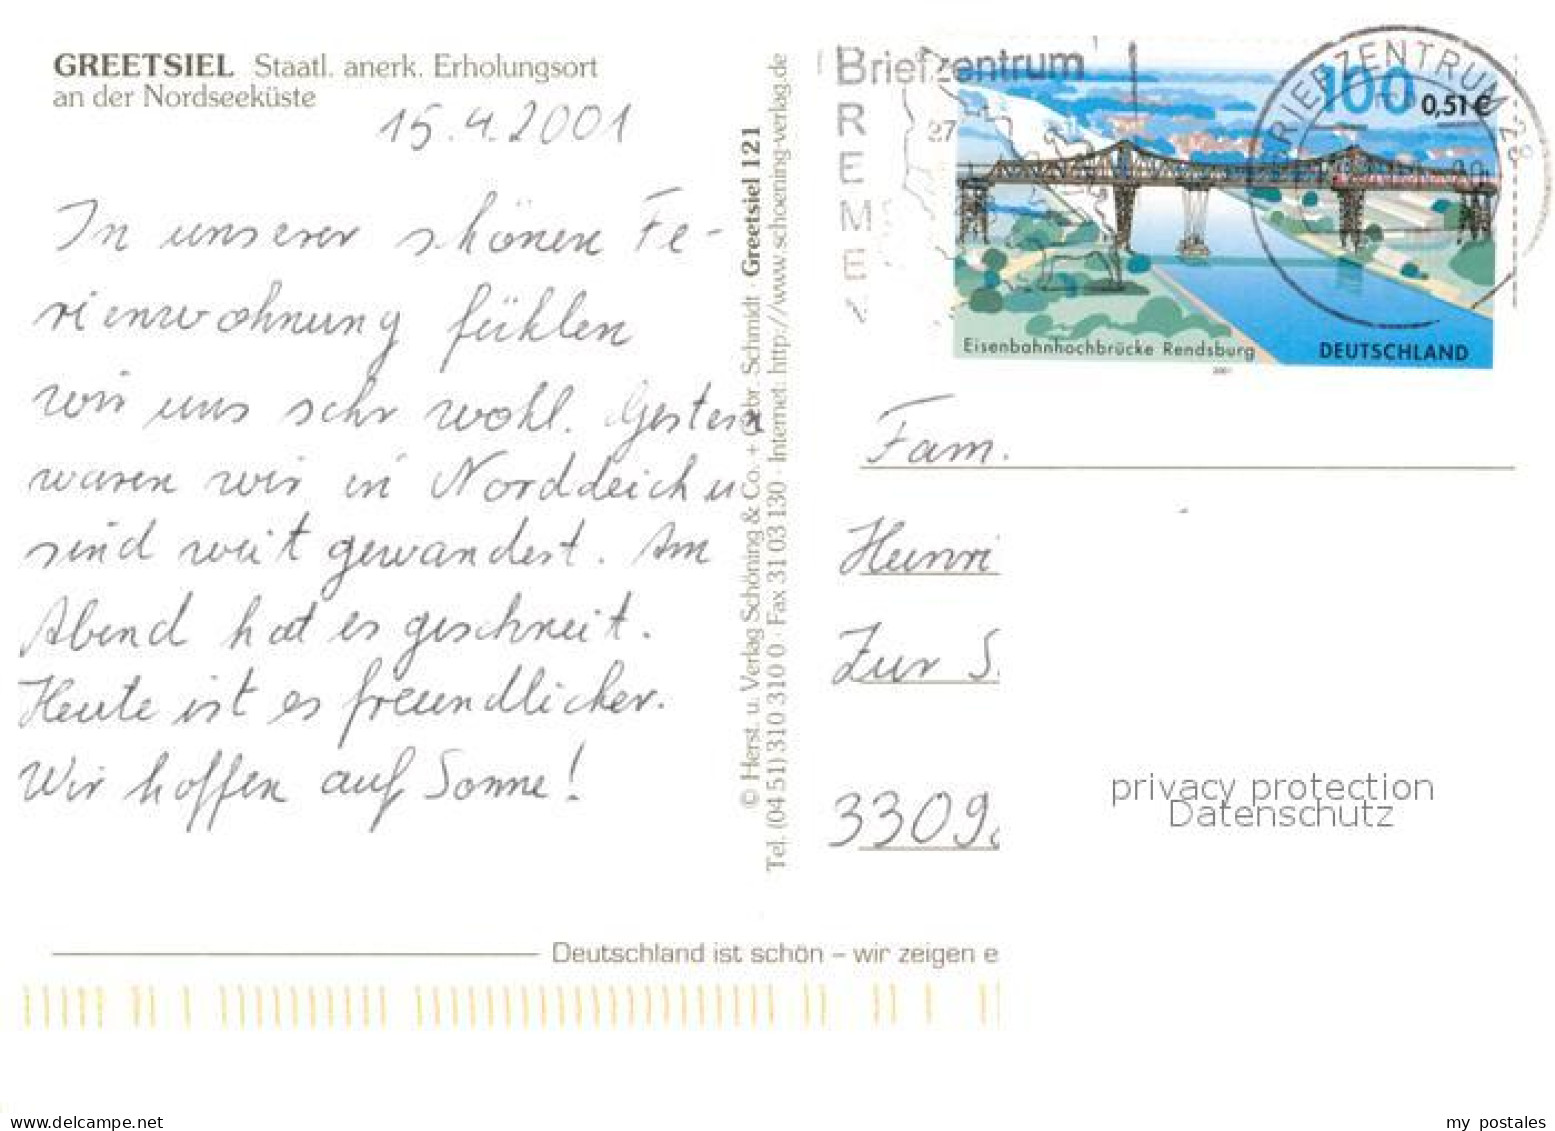 GREETSIEL Staatl. anerk. Erholungsort
an der Nordseeküste
15.4.2001
In unserer schönen Fe-
rienwohnung fühlen
wir uns sehr wohl. Gestern
waren wir in Norddeich u
sind weit gewandert. Am
Abend hat es geschneit.
Heute ist es freundlicher.
Wir hoffen auf Sonne!
© Herst. u. Verlag Schöning & Co. + Gebr. Schmidt · Greetsiel 121
Tel. (04 51) 310 310 0 · Fax 31 03 130 · Internet: http://www.schoening-verlag.de
Briefzentrum
BREMEN
27
BRIEFZENTRUM 28
100
0,51 €
Eisenbahnhochbrücke Rendsburg
DEUTSCHLAND
2001
Fam.
Heinri
Zur S.
3309
privacy protection
Datenschutz
Deutschland ist schön – wir zeigen e
www.delcampe.net
my_postales